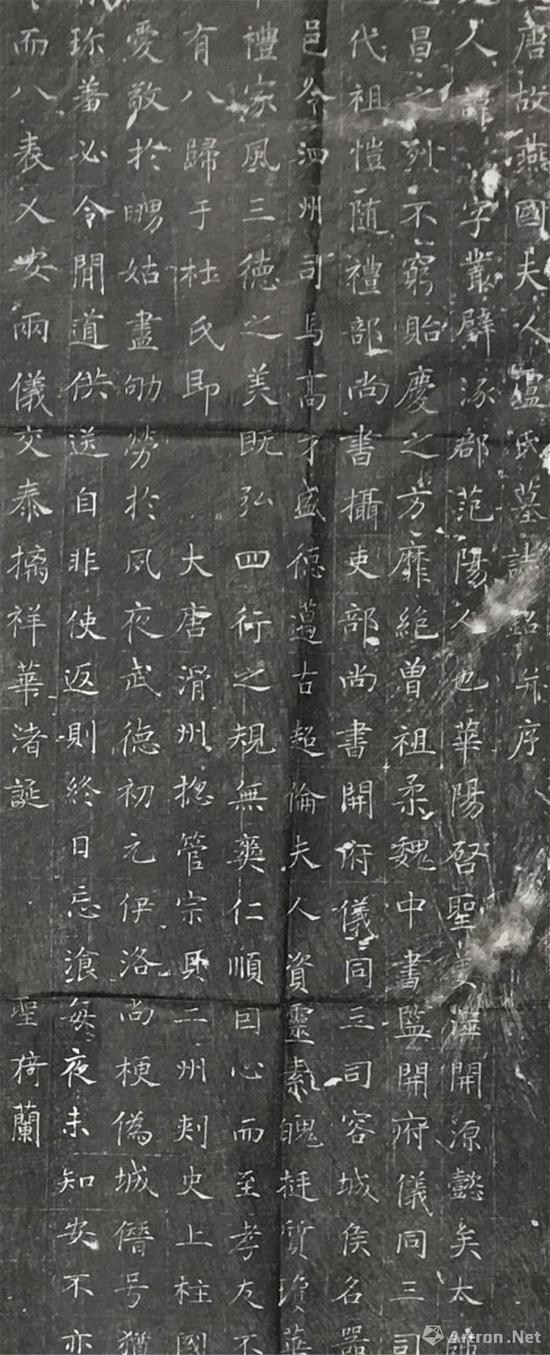 唐故燕國夫人盧氏墓誌銘并序
人諱 字叢璧涿郡范陽人也華陽啓聖 源開源懿矣太師
昌之列不窮貽慶之方靡絶曽祖柔魏中書監開府儀同三司
代祖愷随禮部尚書攝吏部尚書開府儀同三司容城侯名器
邑令泗州司馬高才盛德邁古超倫夫人資靈素魄挺質瓊華
禮家風三德之美既弘四行之規無爽仁順因心而至孝友不
有八歸于杜氏即 大唐滑州揔管宗具二州刾史上柱國
愛敬於舅姑盡劬勞於夙夜武德初元伊洛尚梗偽城僭号猶
珎羞必令間道供送自非使返則終日忘飡每夜未知安不亦
而八表乂安兩儀交泰摛祥華渚誕 聖猗蘭
Artron.Net